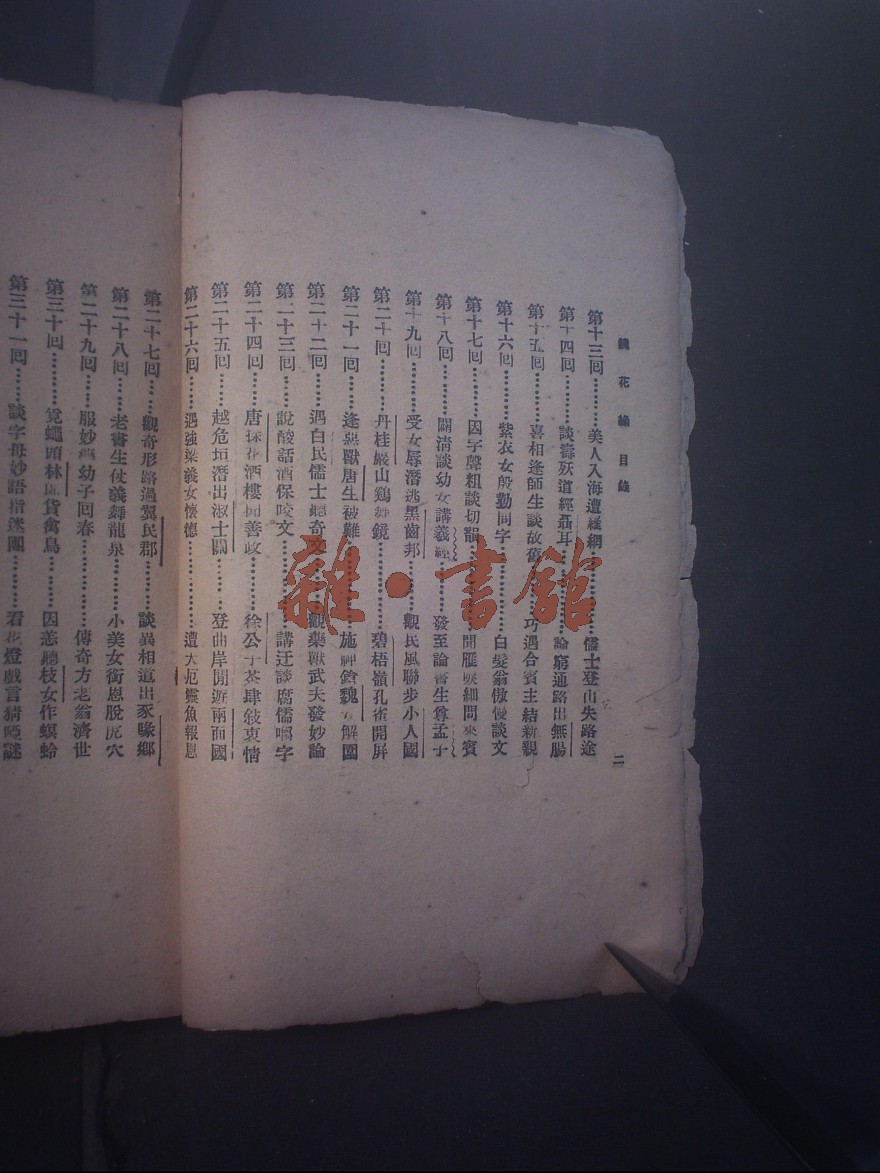 鏡花緣目錄
二
第十三回………美人入海遭羅網………儒士登山失路途
第十四回………談壽夭道經聶耳………論窮通路出無腸
第十五回………喜相逢師生談故舊………巧遇合賓主結新親
第十六回………紫衣女殷勤問字………白髮翁傲慢談文
第十七回………因字聲粗談切韻………聞雁唳細問來賓
第十八回………闢清談幼女講義經………發至論書生尊孟子
第十九回………受女辱潛逃黑齒邦………觀民風聯步小人國
第二十回………丹桂巖山鷄舞鏡………碧梧嶺孔雀開屏
第二十一回………逢惡獸唐生被難………施神鎗魏女解圍
第二十二回………遇白民儒士聽奇文………觀藥獸武夫發妙論
第二十三回………說酸話酒保咬文………講迂談腐儒嚼字
第二十四回………唐探花酒樓聞善政………徐公子茶肆敍衷情
第二十五回………越危垣潛出淑士關………登曲岸閒遊兩面國
第二十六回………遇強梁義女懷德………遭大厄靈魚報恩
第二十七回………觀奇形路過翼民郡………談異相道出豕喙鄉
第二十八回………老書生仗義舞龍泉………小美女銜恩脫虎穴
第二十九回………服妙藥幼子回春………傳奇方老翁濟世
第三十回………覓蠅頭林郎貨禽鳥………因恙體枝女作螟蛉
第三十一回………談字母妙語指迷團………看花燈戲言猜啞謎
雜·書館